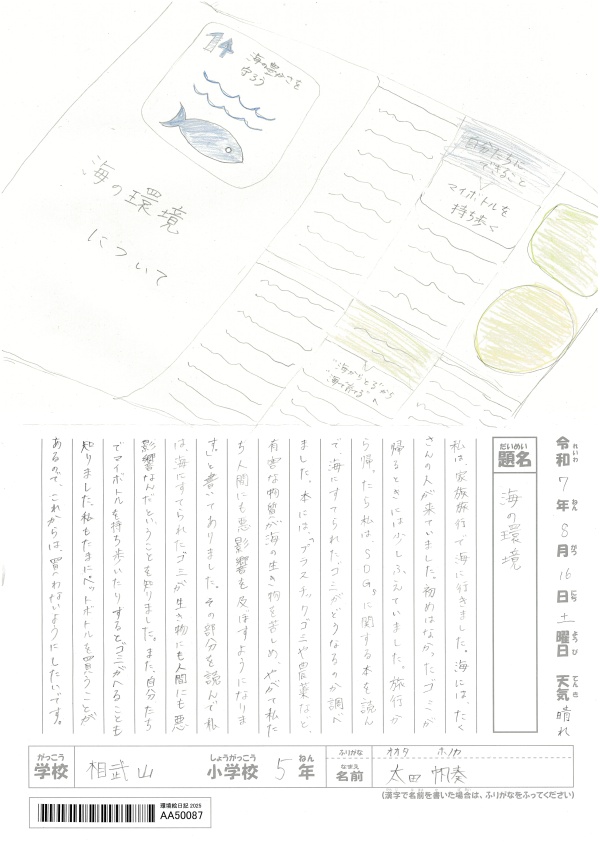 14
海の豊かさを
守ろう
海の環境
について
自分たちに
できること
マイボトルを
持ち歩く
"海からとる"から
"海で育てる"へ
令和7年8月16日土曜日 天気 晴れ
れいわ ねん がつ にち ようび てんき
だいめい
題名
海の環境
私は家族旅行で海に行きました。海には、たく
さんの人が来ていました。初めはなかったゴミが
帰るときには少しふえていました。旅行か
ら帰ったら私はSDGsに関する本を読ん
で、海にすてられたゴミがどうなるのか調べ
ました。本には、「プラスチックゴミや農薬など、
有害な物質が海の生き物を苦しめ、やがて私た
ち人間にも悪影響を及ぼすようになりま
す。」と書いてありました。その部分を読んで私
は、海にすてられたゴミが生き物にも人間にも悪
影響なんだということを知りました。また、自分たち
でマイボトルを持ち歩いたりするとゴミがへることも
知りました。私もたまにペットボトルを買うことが
あるので、これからは、買わないようにしたいです。
がっこう しょうがっこう ねん
学校 相武山 小学校 5年
ふりがな オオタ ホノカ
なまえ
名前 太田 帆奏
(漢字で名前を書いた場合は、ふりがなをふってください)
環境絵日記 2025
AA50087